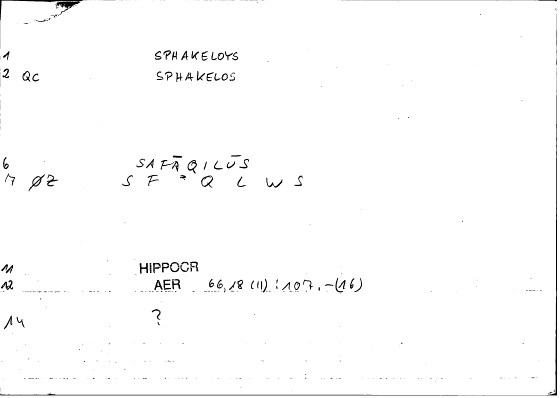 1 SPHAKELOYS
2 QC SPHAKELOS
6 SAFĀQILŪS
7 ØZ S F * Q L W S
11 HIPPOCR
12 AER 66,18 (11) : 107,-(16)
14 ?